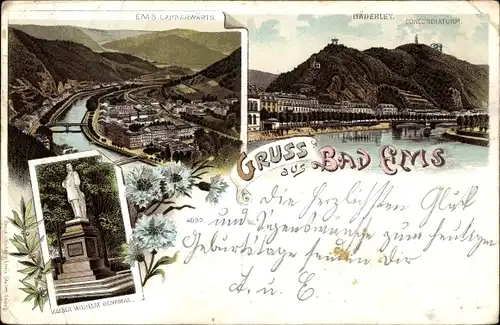 EMS LAHNABWÄRTS.
BÄDERLEY.
CONCORDIATURM.
GRUSS aus BAD EMS
4090.
Die herzlichsten Glück
und Segenswünsche zum heutigen
Geburtstage senden dir
A. u. E.
KAISER WILHELM DENKMAL.